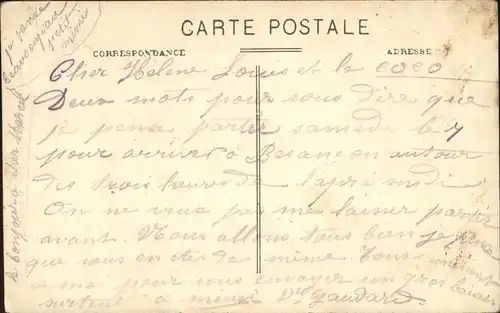 CARTE POSTALE
CORRESPONDANCE
ADRESSE
je pense
beaucoup au
petit
mimi
le bonjour à
Cher Hélène Louis et le coco
Deux mots pour vous dire que
je pense partir samedi le 7
pour arriver à Besançon autour
des trois heures de l'après midi
On ne veut pas me laisser partir
avant. Nous allons tous bien je pense
que vous en êtes de même. Tous
moi pour vous envoyer un gros baiser
surtout à mimi